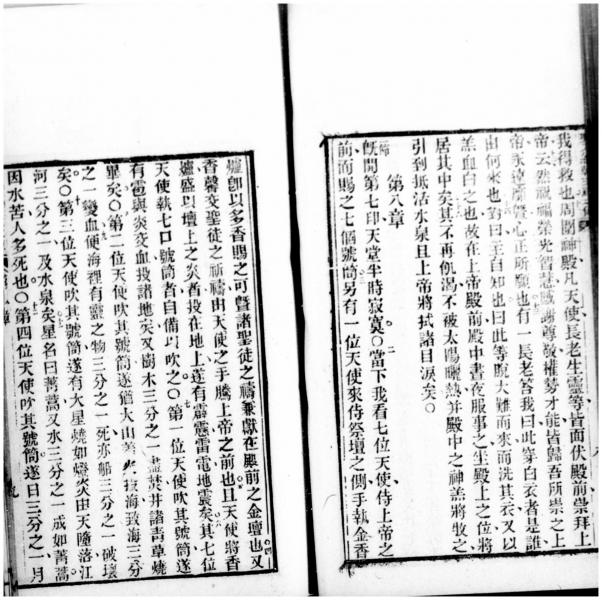 我得救也周圍繞殿凡天使長老生靈等皆面伏殿前崇拜上
帝云然哉福榮光智慧感謝尊敬權勢才能皆歸吾所崇之上
帝永遠靡曁心正所願也有一長老答我曰此穿白衣者是誰
由何來也對曰主自知也曰此等脫大難而來而洗其衣又以
羔血白之也故在上帝殿前殿中晝夜服事之坐殿上之位將
居其中矣其不再飢渴不被太陽曬熱并殿中之神羔將牧之
引到抵活水泉且上帝將拭諸目淚矣○
第八章
旣開第七印天堂半時寂寞○當下我看七位天使侍上帝之
前而賜之七個號筒另有一位天使來侍祭壇之側手執金香
爐卽以多香賜之可曁諸聖徒之禱兼獻在殿前之金壇也又
香馨交聖徒之祈禱由天使之手騰上帝之前也且天使將香
爐盛以壇上之炎者投在地上遂有霹靂雷電地震矣其七位
天使執七口號筒者自備以吹之○第一位天使吹其號筒遂
有雹與炎交血投諸地矣又樹木三分之一盡焚并諸青草燒
畢矣○第二位天使吹其號筒遂猶大山焚火投海致海三分
之一變血便海裡有靈之物三分之一死亦船三分之一破壞
矣○第三位天使吹其號筒遂有大星燒如燈炎由天隨落江
河三分之一及水泉矣星名曰菁蒿又水三分之一成如菁蒿
因水苦人多死也○第四位天使吹其號筒遂日三分之一月